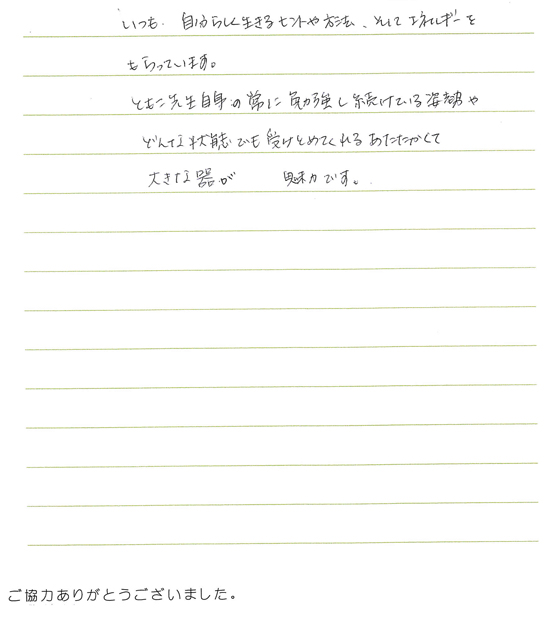 いつも、自分らしく生きるヒントや方法、そしてエネルギーを
もらっています。
ともこ先生自身の常に勉強し続けている姿勢や
どんな状態でも受けとめてくれるあたたかくて
大きな器が 魅力です。
ご協力ありがとうございました。